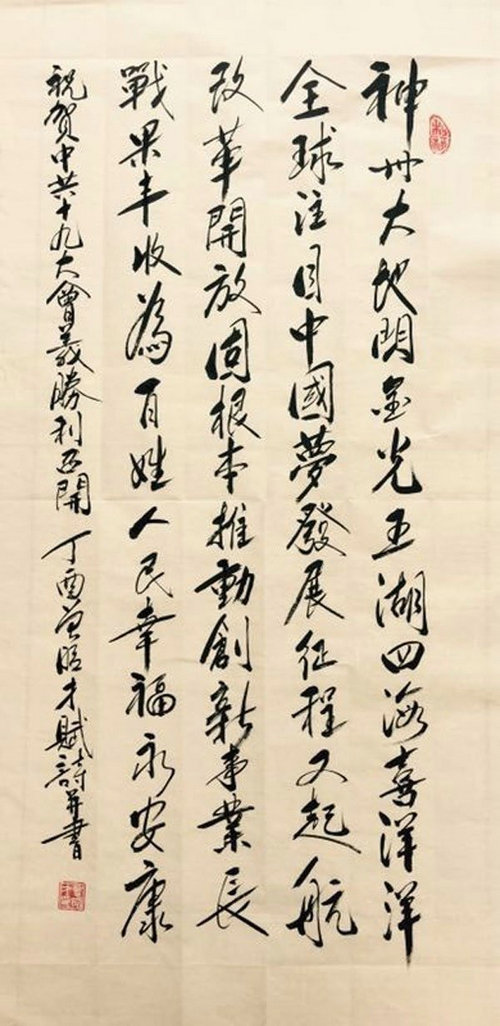 神州大地閃金光五湖四海喜洋洋
全球注目中國夢發展征程又起航
改革開放固根本推動創新事業長
戰果丰收為百姓人民幸福永安康
祝贺中共十九大會義勝利召開 丁酉 昭才賦詩並書